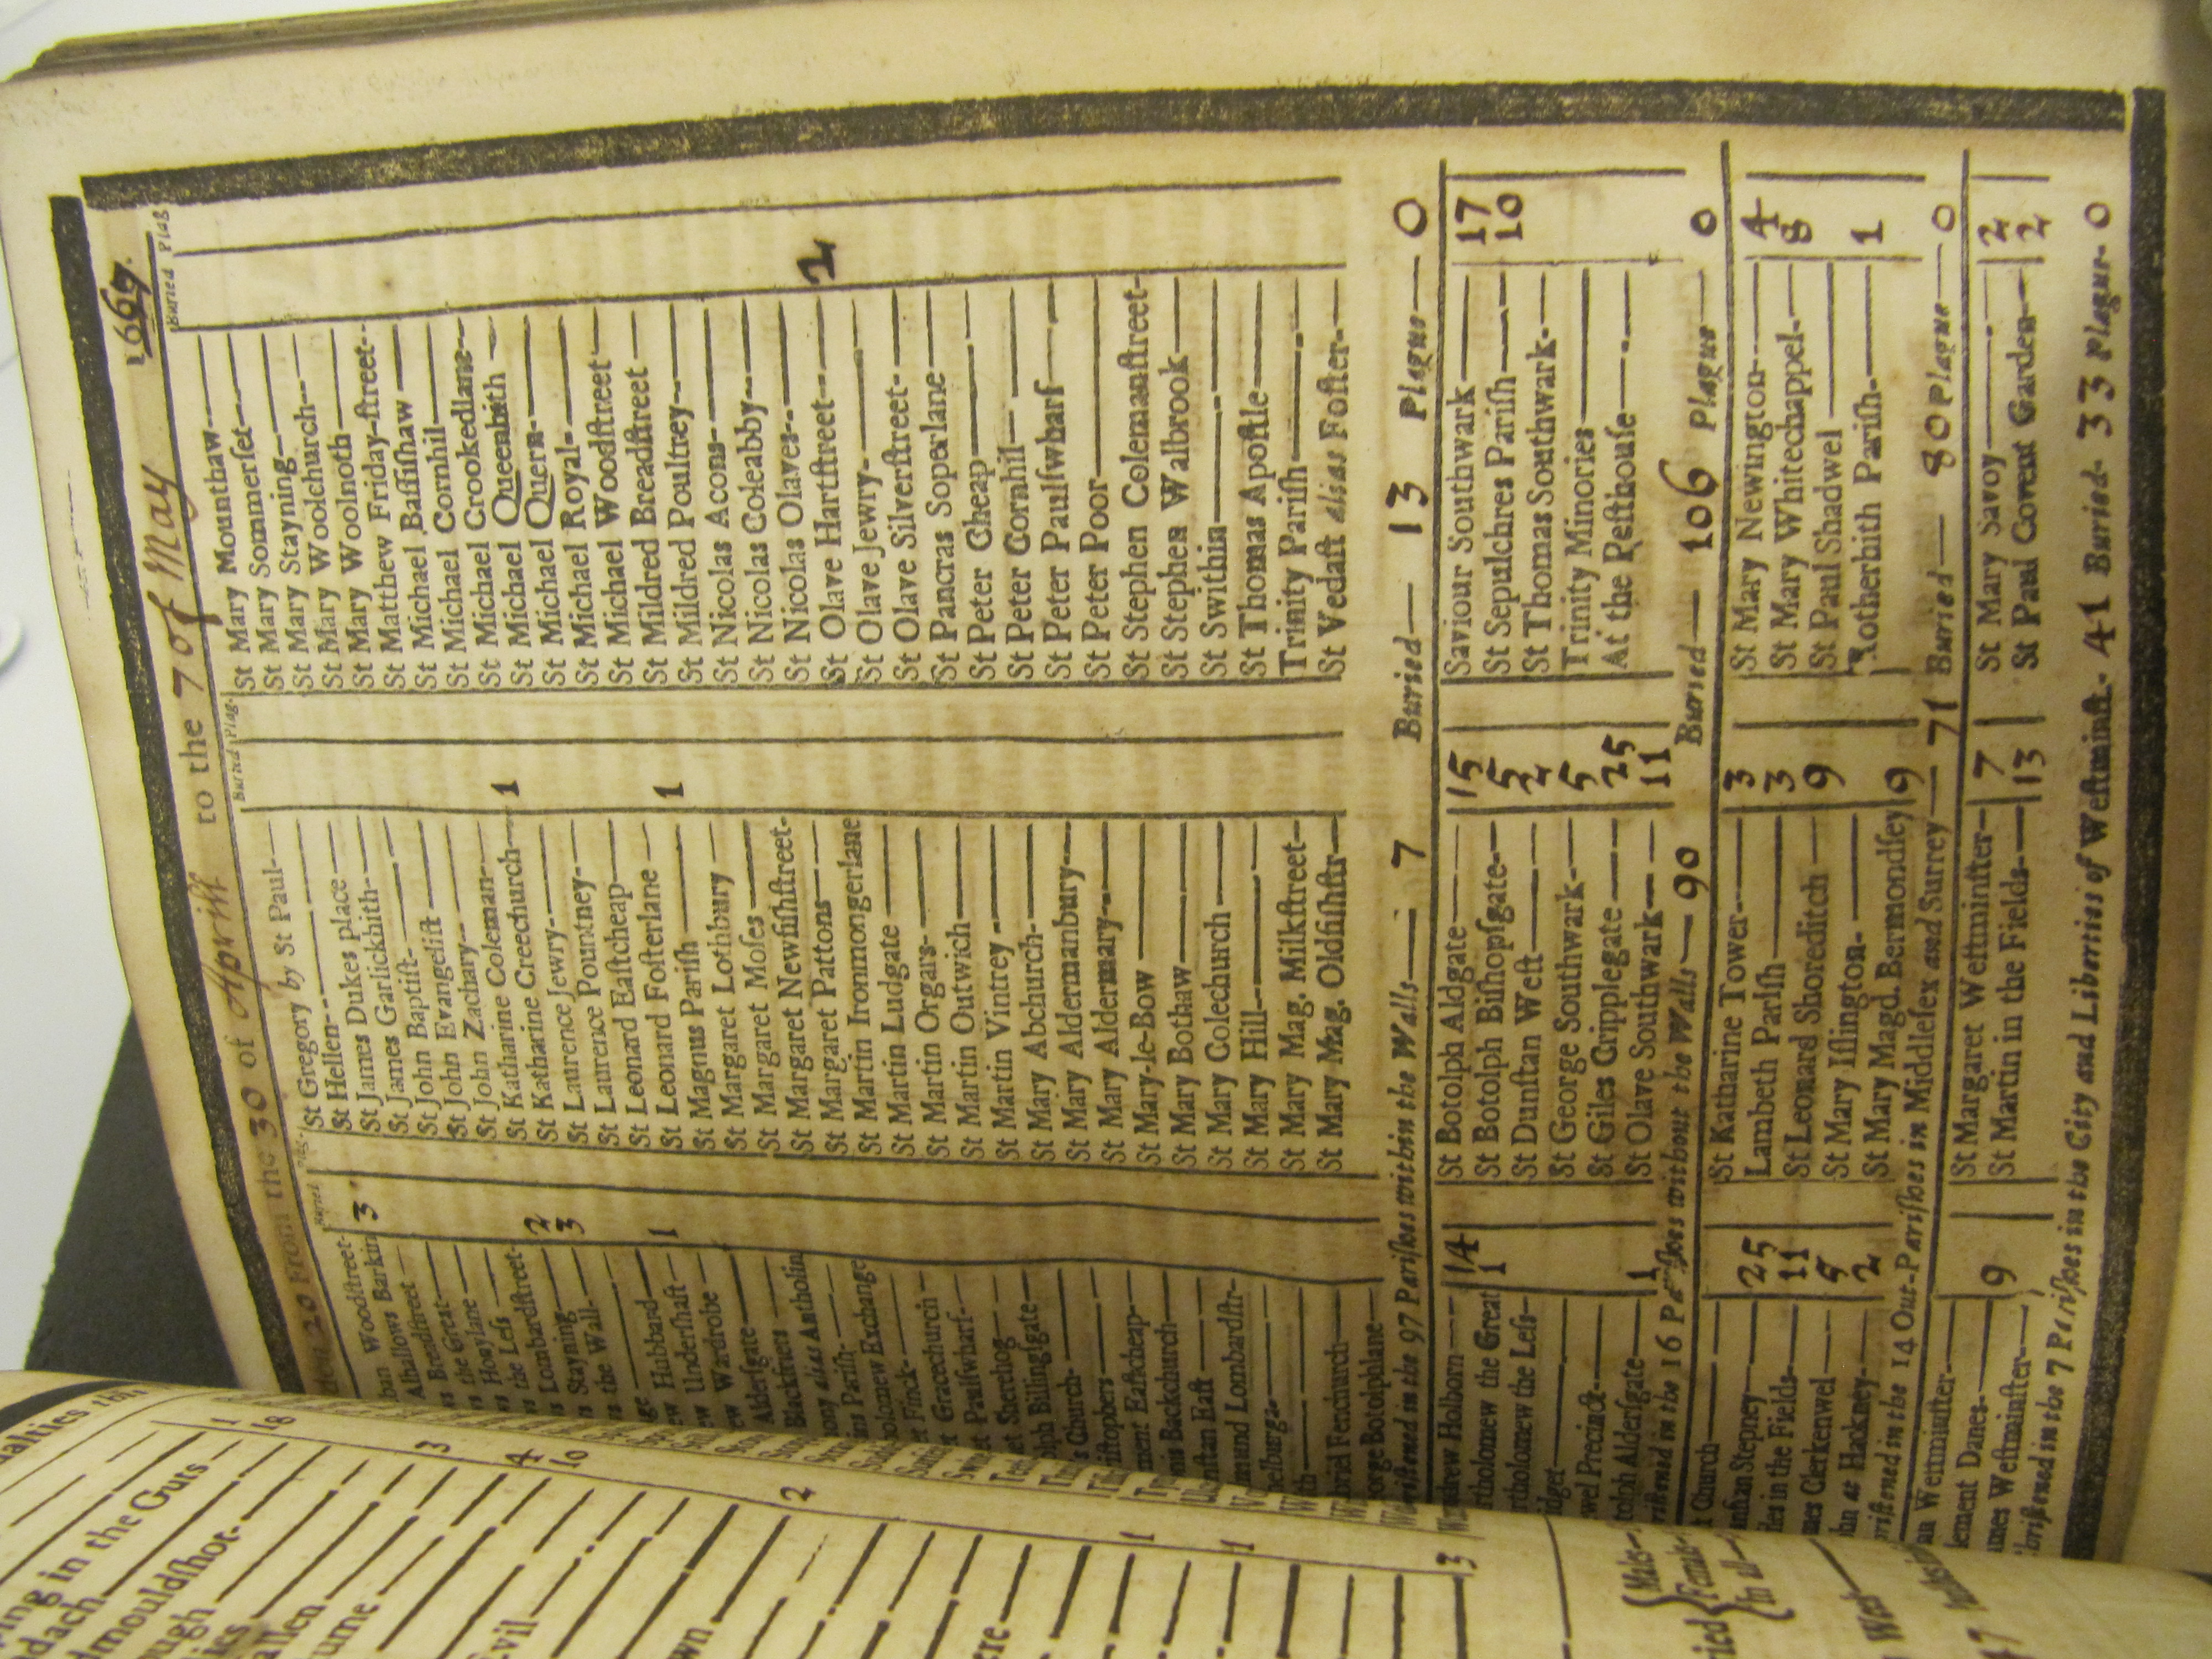 20 From the 30 of Aprill to the 7 of May 1667
Buried Plag.
Woodstreet-
Allhallows Barkin 3
Breadstreet
the Great
Honylane
the Less
Lombardstreet- 2
Stayning 3
the Wall
Hubbard 1
Undershaft
Wardrobe
Aldersgate
Blackfriers
alias Antholin
Parish
Exchange
Finck
Gracechurch
Paulswharf
Sherehog
Billingsgate
Church
Eastcheap
Backchurch
Dunstan East
Edmund Lombardstr-
Fenchurch
George Botolphlane
Buried Plag.
St Gregory by St Paul
St Hellen
St James Dukes place
St James Garlickhith
St John Baptist
St John Evangelist
St John Zachary
St Katharine Coleman
St Katharine Creechurch 1
St Laurence Jewry
St Laurence Pountney
St Leonard Eastcheap
St Leonard Fosterlane
St Magnus Parish 1
St Margaret Lothbury
St Margaret Moses
St Margaret Newfishstreet-
St Margaret Pattons
St Martin Ironmongerlane
St Martin Ludgate
St Martin Orgars
St Martin Outwich
St Martin Vintrey
St Mary Abchurch
St Mary Aldermanbury
St Mary Aldermary
St Mary-le-Bow
St Mary Bothaw
St Mary Colechurch
St Mary Hill
St Mary Mag. Milkstreet
St Mary Mag. Oldfishstr
Buried Plag
St Mary Mounthaw
St Mary Sommerset
St Mary Stayning
St Mary Woolchurch
St Mary Woolnoth
St Matthew Friday-street
St Michael Bassishaw
St Michael Cornhil
St Michael Crookedlane
St Michael Queenhith
St Michael Quern
St Michael Royal
St Michael Woodstreet
St Mildred Breadstreet
St Mildred Poultrey
St Nicolas Acons
St Nicolas Coleabby
St Nicolas Olaves
St Olave Hartstreet 2
St Olave Jewry
St Olave Silverstreet
St Pancras Soperlane
St Peter Cheap
St Peter Cornhil
St Peter Paulswharf
St Peter Poor
St Stephen Colemanstreet-
St Stephen Walbrook
St Swithin
St Thomas Apostle
Trinity Parish
St Vedast alias Foster
in the 97 Parishes within the Walls 7 Buried 13 Plague 0
Holborn 14
the Great 1
the Less
Precinct
Aldersgate 1
St Botolph Aldgate 15
St Botolph Bishopsgate 5
St Dunstan West 2
St George Southwark 5
St Giles Cripplegate 25
St Olave Southwark 11
Saviour Southwark 17
St Sepulchres Parish 10
St Thomas Southwark
Trinity Minories
At the Pesthouse
in the 16 Parishes without the Walls 90 Buried 106 Plague 0
Church
Stepney 25
in the Fields 11
Clerkenwel 5
at Hackney 2
St Katharine Tower 3
Lambeth Parish 3
St Leonard Shoreditch 9
St Mary Islington
St Mary Magd. Bermondsey 9
St Mary Newington 4
St Mary Whitechappel 8
St Paul Shadwel
Rotherhith Parish 1
in the 14 Out-Parishes in Middlesex and Surrey 71 Buried 80 Plague 0
Westminster
Danes 9
Westminster
St Margaret Westminster 7
St Martin in the Fields 13
St Mary Savoy 2
St Paul Covent Garden 2
in the 7 Parishes in the City and Liberties of Westminst. 41 Buried 33 Plague 0
in the Guts 1
18
3
4
10
2
1
1
3
Males
Females
In all
Week